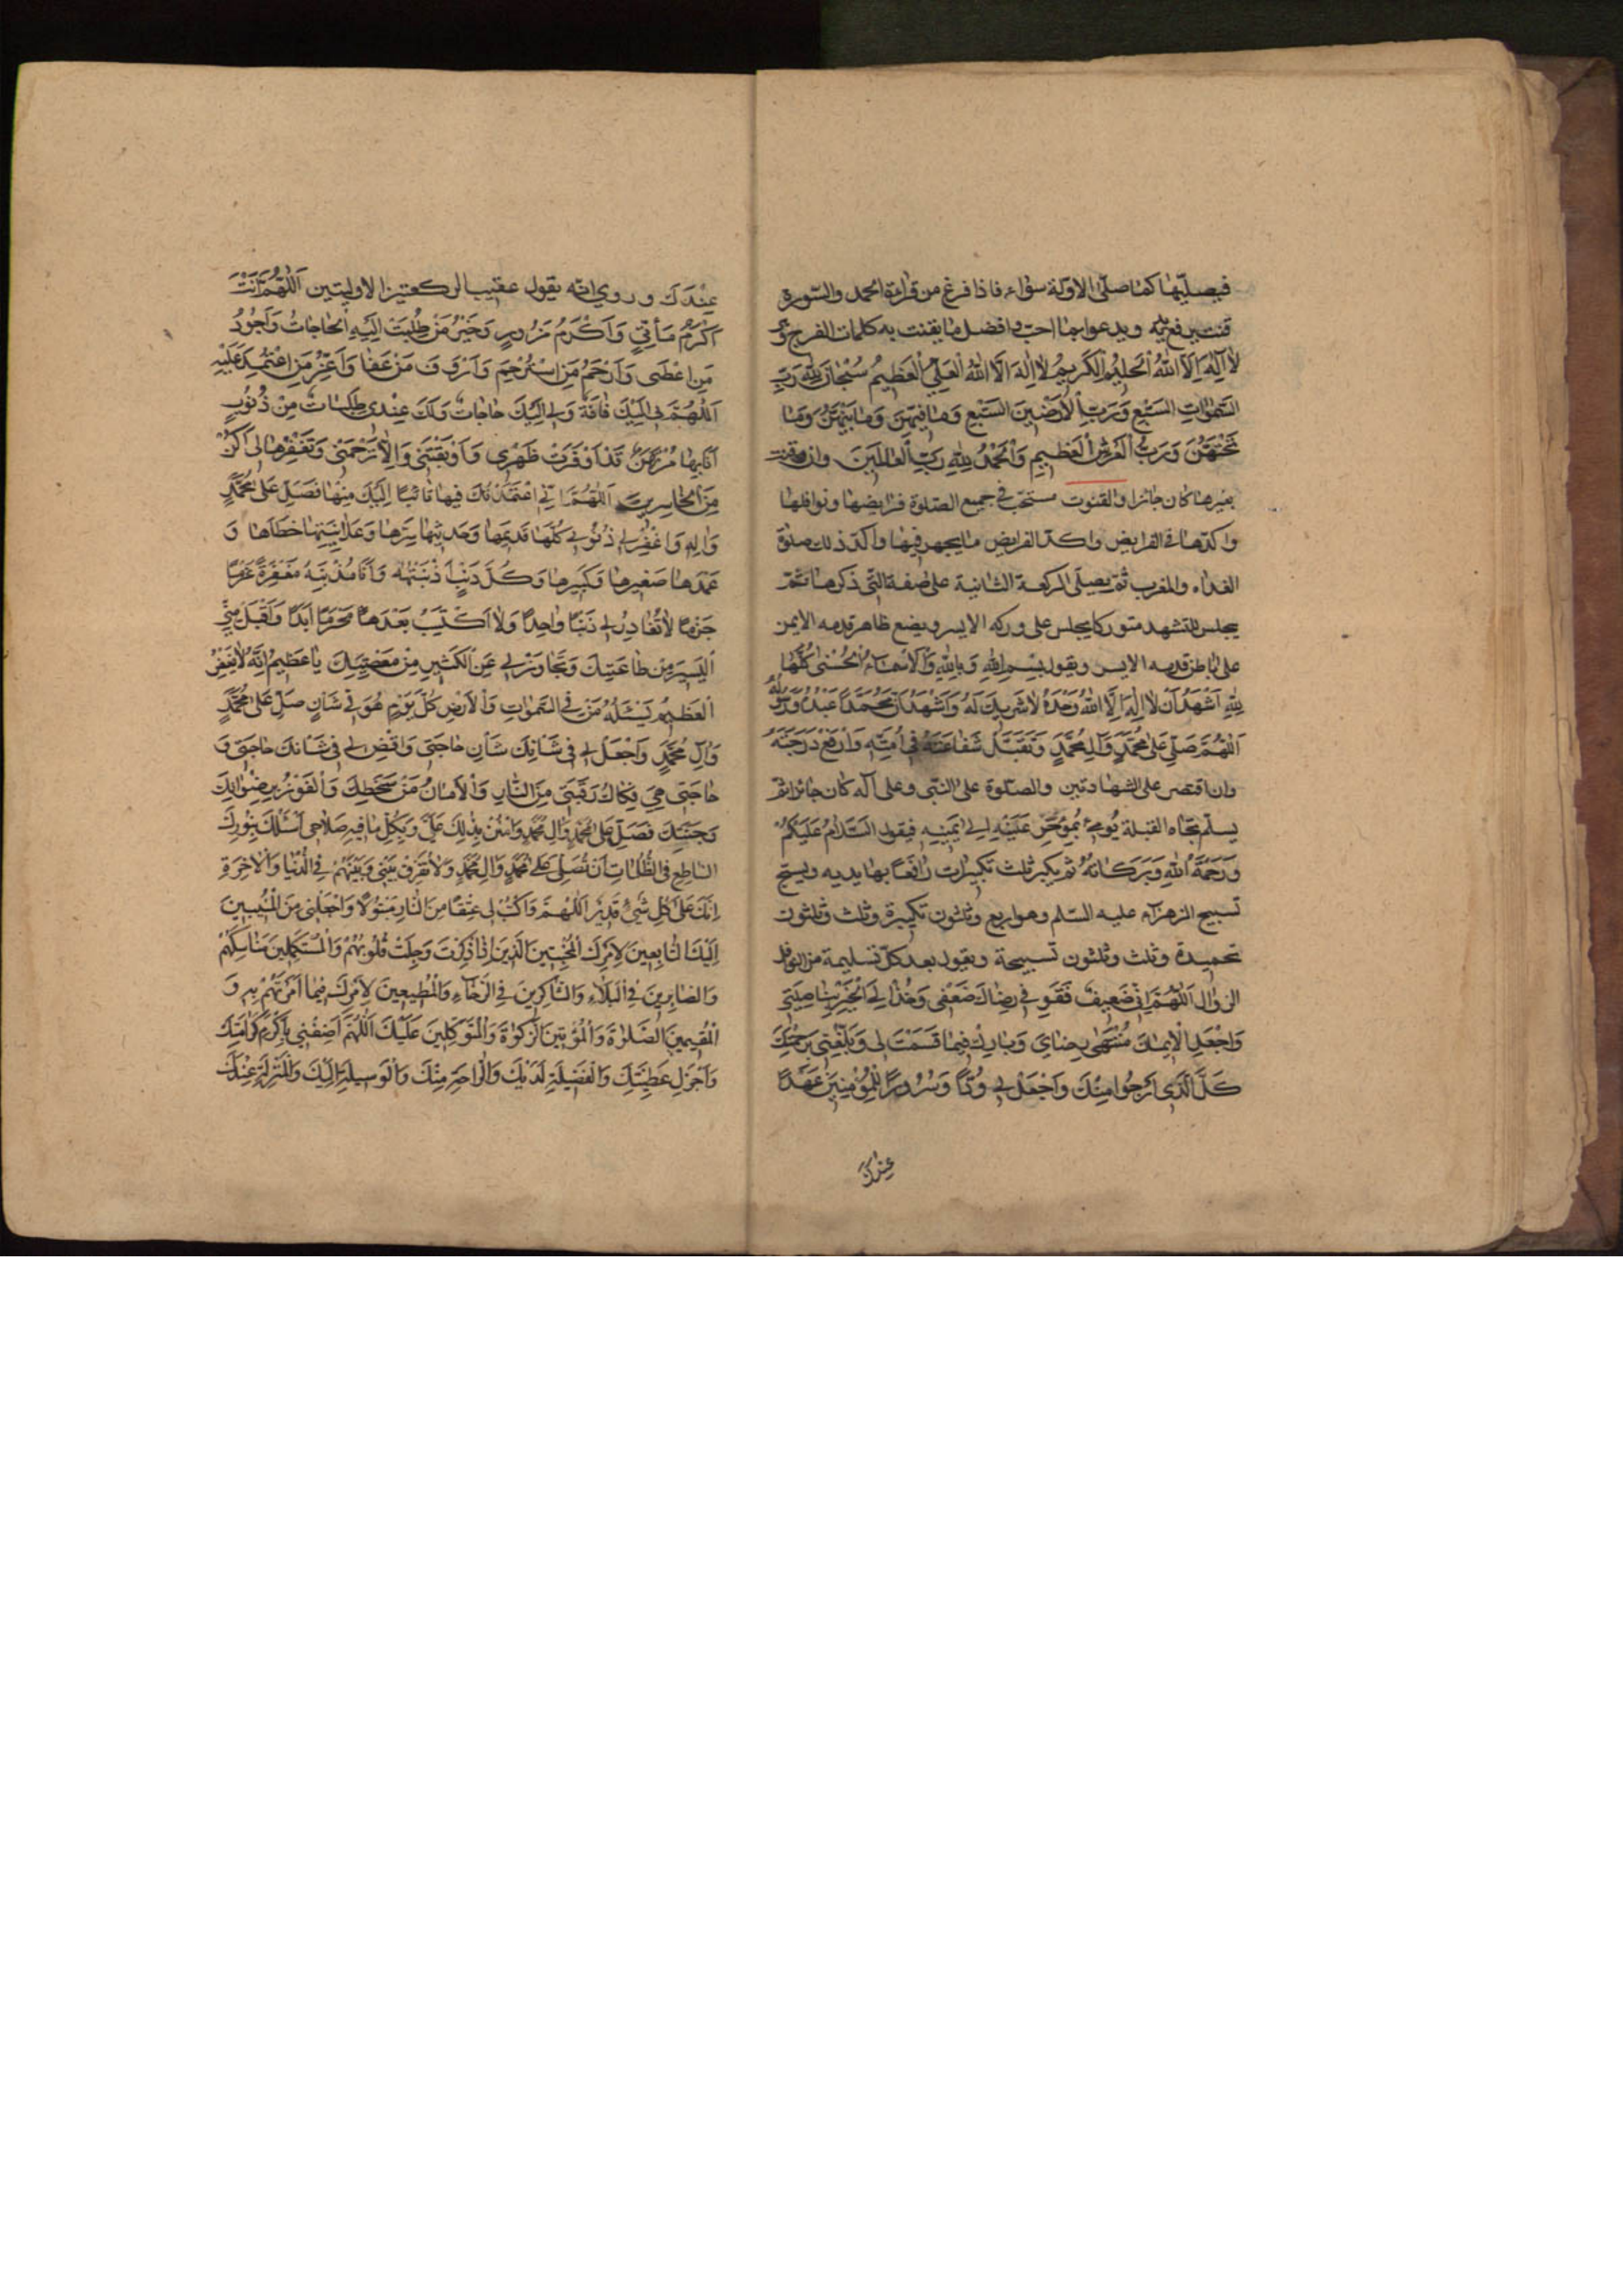 فيصلّيها كما صلّى الاوّلة سواء فاذا فرغ من قراءة الحمد والسّورة
قنت يرفع يديه ويدعو بما احبّ وافضل ما يقنت به كلمات الفرج وهي
لا اِلٰهَ اِلَّا اللهُ الْحَليمُ الْكَريمُ لا اِلٰهَ اِلَّا اللهُ الْعَلِيُّ الْعَظيمُ سُبْحانَ اللهِ رَبِّ
السَّمٰواتِ السَّبْعِ وَرَبِّ الْاَرَضينَ السَّبْعِ وَما فيهِنَّ وَما بَيْنَهُنَّ وَما
تَحْتَهُنَّ وَرَبِّ الْعَرْشِ الْعَظيمِ وَالْحَمْدُ لِلّٰهِ رَبِّ الْعالَمينَ وان قنت
بغيرها كان جائزا والقنوت مستحبّ في جميع الصّلوة فرايضها ونوافلها
واكدّها في الفرايض واكدّ الفرايض ما يجهر فيها وآكد ذلك صلوة
الغداة والمغرب ثمّ يصلّى الركعة الثانية على صفة الّتي ذكرها ثمّ
يجلس للتشهد متوركا يجلس على وركه الايسر ويضع ظاهر قدمه الايمن
على باطن قدمه الايسر ويقول بِسْمِ اللهِ وَبِاللهِ وَالْاَسْماءُ الْحُسْنى كُلُّها
لِلّٰهِ اَشْهَدُ اَنْ لا اِلٰهَ اِلَّا اللهُ وَحْدَهُ لا شَريكَ لَهُ وَاَشْهَدُ اَنَّ مُحَمَّدًا عَبْدُهُ وَرَسُولُهُ
اَللّٰهُمَّ صَلِّ عَلى مُحَمَّدٍ وَآلِ مُحَمَّدٍ وَتَقَبَّلْ شَفاعَتَهُ في اُمَّتِهِ وَارْفَعْ دَرَجَتَهُ
وان اقتصر على الشهادتين والصّلوة على النّبي وعلى آله كان جائزا ثمّ
يسلّم تجاه القبلة يُومِئُ بِمُؤَخَّرِ عَيْنِهِ اِلى يَمينِهِ فيقول السَّلامُ عَلَيْكُمْ
وَرَحْمَةُ اللهِ وَبَرَكاتُهُ ثم يكبر ثلث تكبيرات رافعًا بها يديه ويسبّح
تسبيح الزهراء عليه السّلم وهو اربع وثلثون تكبيرة وثلث وثلثون
تحميدة وثلث وثلثون تسبيحة ويقول بعد كلّ تسليمة من نوافل
الزوال اَللّٰهُمَّ اِنّي ضَعيفٌ فَقَوِّ في رِضاكَ ضَعْفي وَخُذْ اِلَى الْخَيْرِ بِناصِيَتي
وَاجْعَلِ الْايمانَ مُنْتَهى رِضايَ وَبارِكْ لي فيما قَسَمْتَ لي وَبَلِّغْني بِرَحْمَتِكَ
كُلَّ الَّذي اَرْجُوا مِنْكَ وَاجْعَلْ لي وُدًّا وَسُرُورًا لِلْمُؤْمِنينَ وَعَهْدًا
عِنْدَكَ
عِنْدَكَ وروي انّه يقول عقيب الركعتين الاوليتين اَللّٰهُمَّ اَنْتَ
اَكْرَمُ مَأْتِيٍّ وَاَكْرَمُ مَزُورٍ وَخَيْرُ مَنْ طُلِبَتْ اِلَيْهِ الْحاجاتُ وَاَجْوَدُ
مَنْ اَعْطى وَاَرْحَمُ مَنِ اسْتُرْحِمَ وَاَرْؤَفُ مَنْ عَفا وَاَعَزُّ مَنِ اعْتُمِدَ عَلَيْهِ
اَللّٰهُمَّ بي اِلَيْكَ فاقَةٌ وَلي اِلَيْكَ حاجاتٌ وَلَكَ عِنْدي طَلِباتٌ مِنْ ذُنُوبٍ
اَنَا بِها مُرْتَهَنٌ قَدْ اَوْقَرَتْ ظَهْري وَاَوْبَقَتْني وَاِلَّا تَرْحَمْني وَتَغْفِرْها لي اَكُنْ
مِنَ الْخاسِرينَ اَللّٰهُمَّ اِنّي اعْتَمَدْتُكَ فيها تائِبًا اِلَيْكَ مِنْها فَصَلِّ عَلى مُحَمَّدٍ
وَالِهِ وَاغْفِرْ لي ذُنُوبي كُلَّها قَديمَها وَحَديثَها سِرَّها وَعَلانِيَتَها خَطَاَها وَ
عَمْدَها صَغيرَها وَكَبيرَها وَكُلَّ ذَنْبٍ اَذْنَبْتُهُ وَاَنَا مُذْنِبُهُ مَغْفِرَةً عَزْمًا
جَزْمًا لا تُغادِرُ لي ذَنْبًا واحِدًا وَلا اَكْتَسِبُ بَعْدَها مُحَرَّمًا اَبَدًا وَاقْبَلْ مِنّي
الْيَسيرَ مِنْ طاعَتِكَ وَتَجاوَزْ لي عَنِ الْكَثيرِ مِنْ مَعْصِيَتِكَ يا عَظيمُ اِنَّهُ لا يَغْفِرُ
الْعَظيمَ يَسْئَلُهُ مَنْ فِي السَّمٰواتِ وَالْاَرْضِ كُلَّ يَوْمٍ هُوَ في شَاْنٍ صَلِّ عَلى مُحَمَّدٍ
وَآلِ مُحَمَّدٍ وَاجْعَلْ لي في شَاْنِكَ شَاْنَ حاجَتي وَاقْضِ لي في شَاْنِكَ حاجَتي وَ
حاجَتي هِيَ فِكاكُ رَقَبَتي مِنَ النّارِ وَالْاَمانُ مِنْ سَخَطِكَ وَالْفَوْزُ بِرِضْوانِكَ
وَجَنَّتِكَ فَصَلِّ عَلى مُحَمَّدٍ وَالِ مُحَمَّدٍ وَامْنُنْ بِذٰلِكَ عَلَيَّ وَبِكُلِّ ما فيهِ صَلاحي اَسْئَلُكَ بِنُورِكَ
السّاطِعِ فِي الظُّلُماتِ اَنْ تُصَلِّيَ عَلى مُحَمَّدٍ وَالِ مُحَمَّدٍ وَلا تُفَرِّقْ بَيْني وَبَيْنَهُمْ فِي الدُّنْيا وَالْاٰخِرَةِ
اِنَّكَ عَلى كُلِّ شَيْءٍ قَديرٌ اَللّٰهُمَّ وَاكْتُبْ لي عِتْقًا مِنَ النّارِ مَبْتُولًا وَاجْعَلْني مِنَ الْمُنيبينَ
اِلَيْكَ التّابِعينَ لِاَمْرِكَ الْمُخْبِتينَ الَّذينَ اِذا ذُكِرْتَ وَجِلَتْ قُلُوبُهُمْ وَالْمُسْتَكْمِلينَ مَناسِكَهُمْ
وَالصّابِرينَ فِي الْبَلاءِ وَالشّاكِرينَ فِي الرَّخاءِ وَالْمُطيعينَ لِاَمْرِكَ فيما اَمَرْتَهُمْ بِهِ وَ
الْمُقيمينَ الصَّلوٰةَ وَالْمُؤْتينَ الزَّكوٰةَ وَالْمُتَوَكِّلينَ عَلَيْكَ اَللّٰهُمَّ اَضِفْني بِاَكْرَمِ كَرامَتِكَ
وَاَجْزَلِ عَطِيَّتِكَ وَالْفَضيلَةِ لَدَيْكَ وَالرّاحَةِ مِنْكَ وَالْوَسيلَةِ اِلَيْكَ وَالْمَنْزِلَةِ عِنْدَكَ